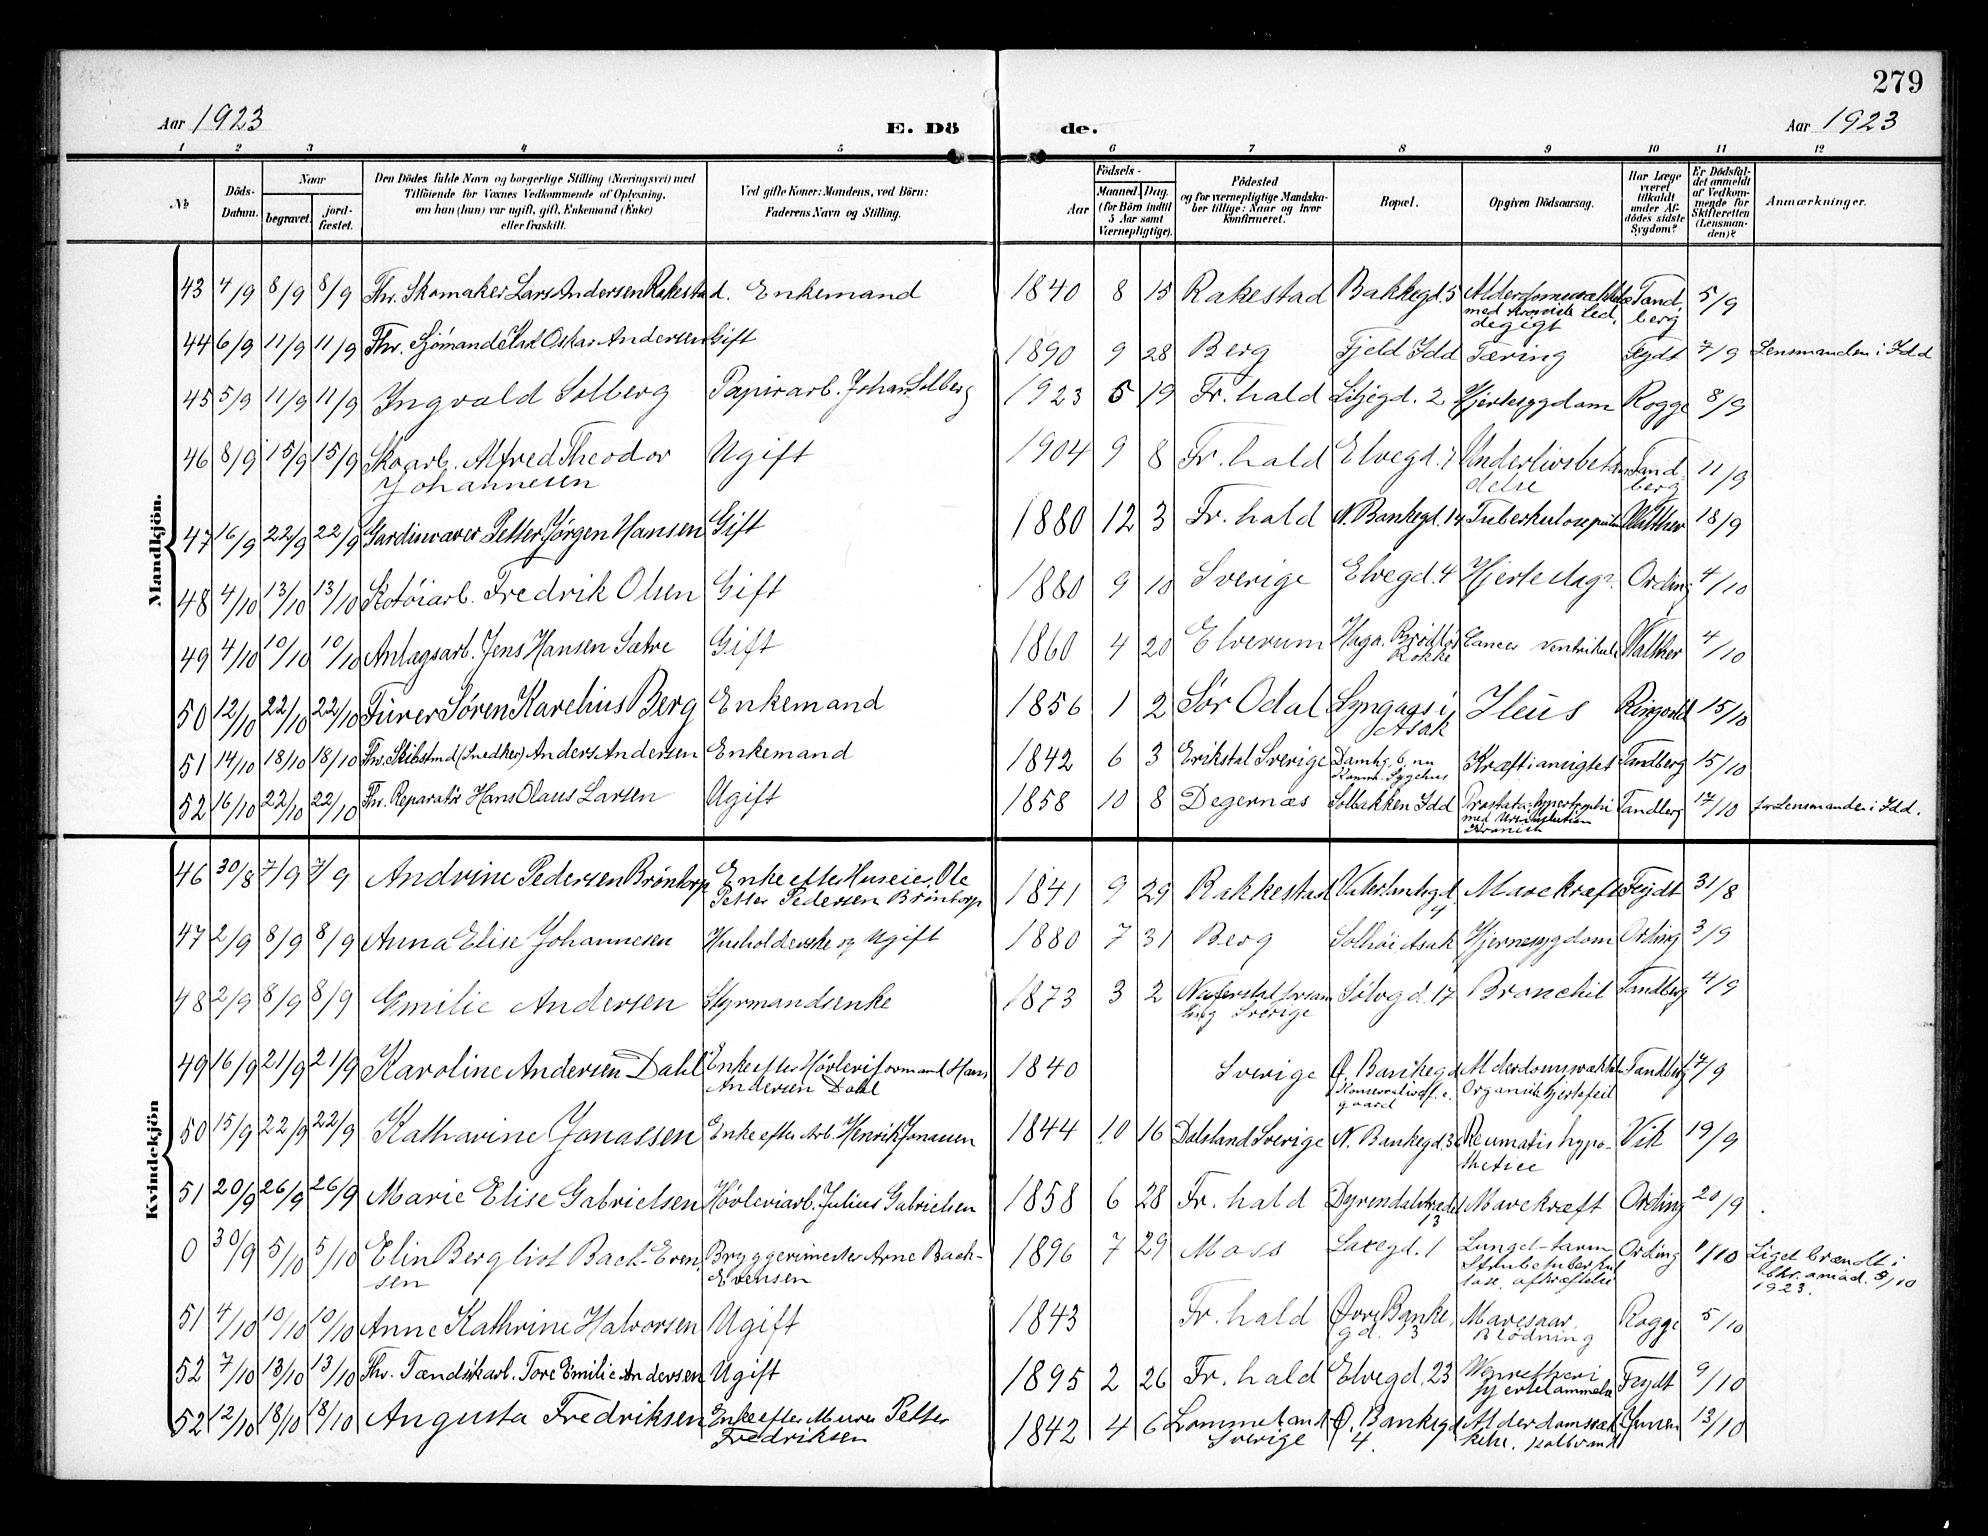 279
Aar 1923
E. Dö
de.
Aar 1923
1 2 3 4 5 6 7 8 9 10 11 12
№
Döds-Datum.
Naar
begravet.
jord-fæstet.
Den Dödes fulde Navn og borgerlige Stilling (Næringsvei) med
Tilföiende for Voxnes Vedkommende af Oplysning,
om han (hun) var ugift, gift, Enkemand (Enke)
eller fraskilt.
Ved gifte Koner: Mandens, ved Börn:
Faderens Navn og Stilling.
Födsels-
Aar
Maaned. Dag.
(for Börn indtil
5 Aar samt
Værnepligtige).
Födested
og for værnepligtige Mandska-
ber tillige: Naar og hvor
konfirmeret.
Bopæl.
Opgiven Dödsaarsag.
Har Læge
været
tilkaldt
under Af-
dödes sidste
Sygdom?
Er Dödsfal-
det anmeldt
af Vedkom-
mende for
Skifteretten
(Lensman-
den)?
Anmærkninger.
Mandkjön.
43 4/9 8/9 8/9 Fhv. Skomaker Lars Andersen Rakestad. Enkemand 1840 8 15 Rakestad Bakkegd. 5 Tandberg 5/9
med kronisk Led.
degigt
44 6/9 11/9 11/9 Fhv. Sjömand Karl Oskar Andersen Gift 1890 9 28 Berg Fjeld Idd Tæring Feydt 7/9 Lensmanden i Idd
45 5/9 11/9 11/9 Ingvald Solberg Papirarb. Johan Solberg 1923 5 19 Fr. hald Liljegd. 2 Hjertesygdom Rogge 8/9
46 8/9 15/9 15/9 Skoarb. Alfred Theodor Ugift 1904 9 8 Fr. hald Elvegd. 7 Underlivsbeten Tandberg 11/9
Johannesen
delse
47 16/9 22/9 22/9 Gardinvæver Petter Jørgen Hansen Gift 1880 12 3 Fr. hald N. Bankegd. 14 Tuberkulose Walther 18/9
48 4/10 13/10 13/10 Skotöiarb. Fredrik Olsen Gift 1880 9 10 Sverige Elvegd. 4 Hjerteslag Ording 4/10
49 4/10 10/10 10/10 Anlægsarb. Jens Hansen Sætre Gift 1860 4 20 Elverum Haga. Cancer ventrikuli Walther 4/10
Rokke
50 12/10 22/10 22/10 Fürer Søren Karelius Berg Enkemand 1856 1 2 Sør Odal Lyngaas i Ileus Ringvold 15/10
Asak
51 14/10 18/10 18/10 Fhv. Skibstmd (Snedker) Anders Andersen Enkemand 1842 6 3 Erikstal Sverige Damhg. 6, nu Kræft i Tandberg 15/10
Komm. Sygehus
52 16/10 22/10 22/10 Fhv. Reparatör Hans Olaus Larsen Ugift 1858 10 8 Degernæs Solbakken Idd Prostata-hypertrophi Tandberg 17/10 for Lensmanden i Idd.
Kvindekjön
46 30/8 7/9 7/9 Andrine Pedersen Bröntorp Enke efter Huseier Ole 1841 9 29 Rakkestad Vaterlandsgd. Mavekræft Feydt 31/8
Petter Pedersen Bröntorp 4
47 2/9 8/9 8/9 Anna Elise Johannesen Husholderske og Ugift 1880 7 31 Berg Solhöi Asak Hjernesygdom Ording 3/9
48 2/9 8/9 8/9 Emilie Andersen Styrmandsenke 1873 3 2 Sölvgd. 17 Bronchit Tandberg 4/9
ling Sverige
49 16/9 21/9 21/9 Karoline Andersen Dahl Enke efter Hövleriformand Hans 1840 Sverige Ø. Bankegd Alderdomssvækkel Tandberg 17/9
Andersen Dahl Organisk Hjertefeil
gaard
50 15/9 22/9 22/9 Katharine Jonassen Enke efter Arb. Henrik Jonassen 1844 10 16 Dalsland Sverige N. Bankegd. 36 Vik 19/9
51 20/9 26/9 26/9 Marie Elise Gabrielsen Hövleriarb. Julius Gabrielsen 1858 6 28 Fr. hald Dyrendalstrædet Mavekræft Ording 20/9
13
0 30/9 5/10 5/10 Elin Bergliot Bach-Even Bryggerimester Arne Bach- 1896 7 29 Moss Saxegd. 1 Lunge-tarm Ording 1/10 Liget brændt i
sen Evensen Strubetuberkul Chr.aniad. 8/10
lose, afkræftelse 1923.
51 4/10 10/10 10/10 Anne Kathrine Halvorsen Ugift 1843 Fr. hald Övre Banke Mavesaar, Rogge 5/10
gd. 13 Blödning
52 7/10 13/10 13/10 Fhv. Tændstikarb. Tore Emilie Andersen Ugift 1895 2 26 Fr. hald Elvegd. 23 Feydt 9/10
Hjertelammelse
52 12/10 18/10 18/10 Augusta Fredriksen Enke efter Murer Petter 1842 4 6 Lommeland Ø. Bankegd Alderdomssvæk 13/10
Fredriksen Sverige 4. kelse.